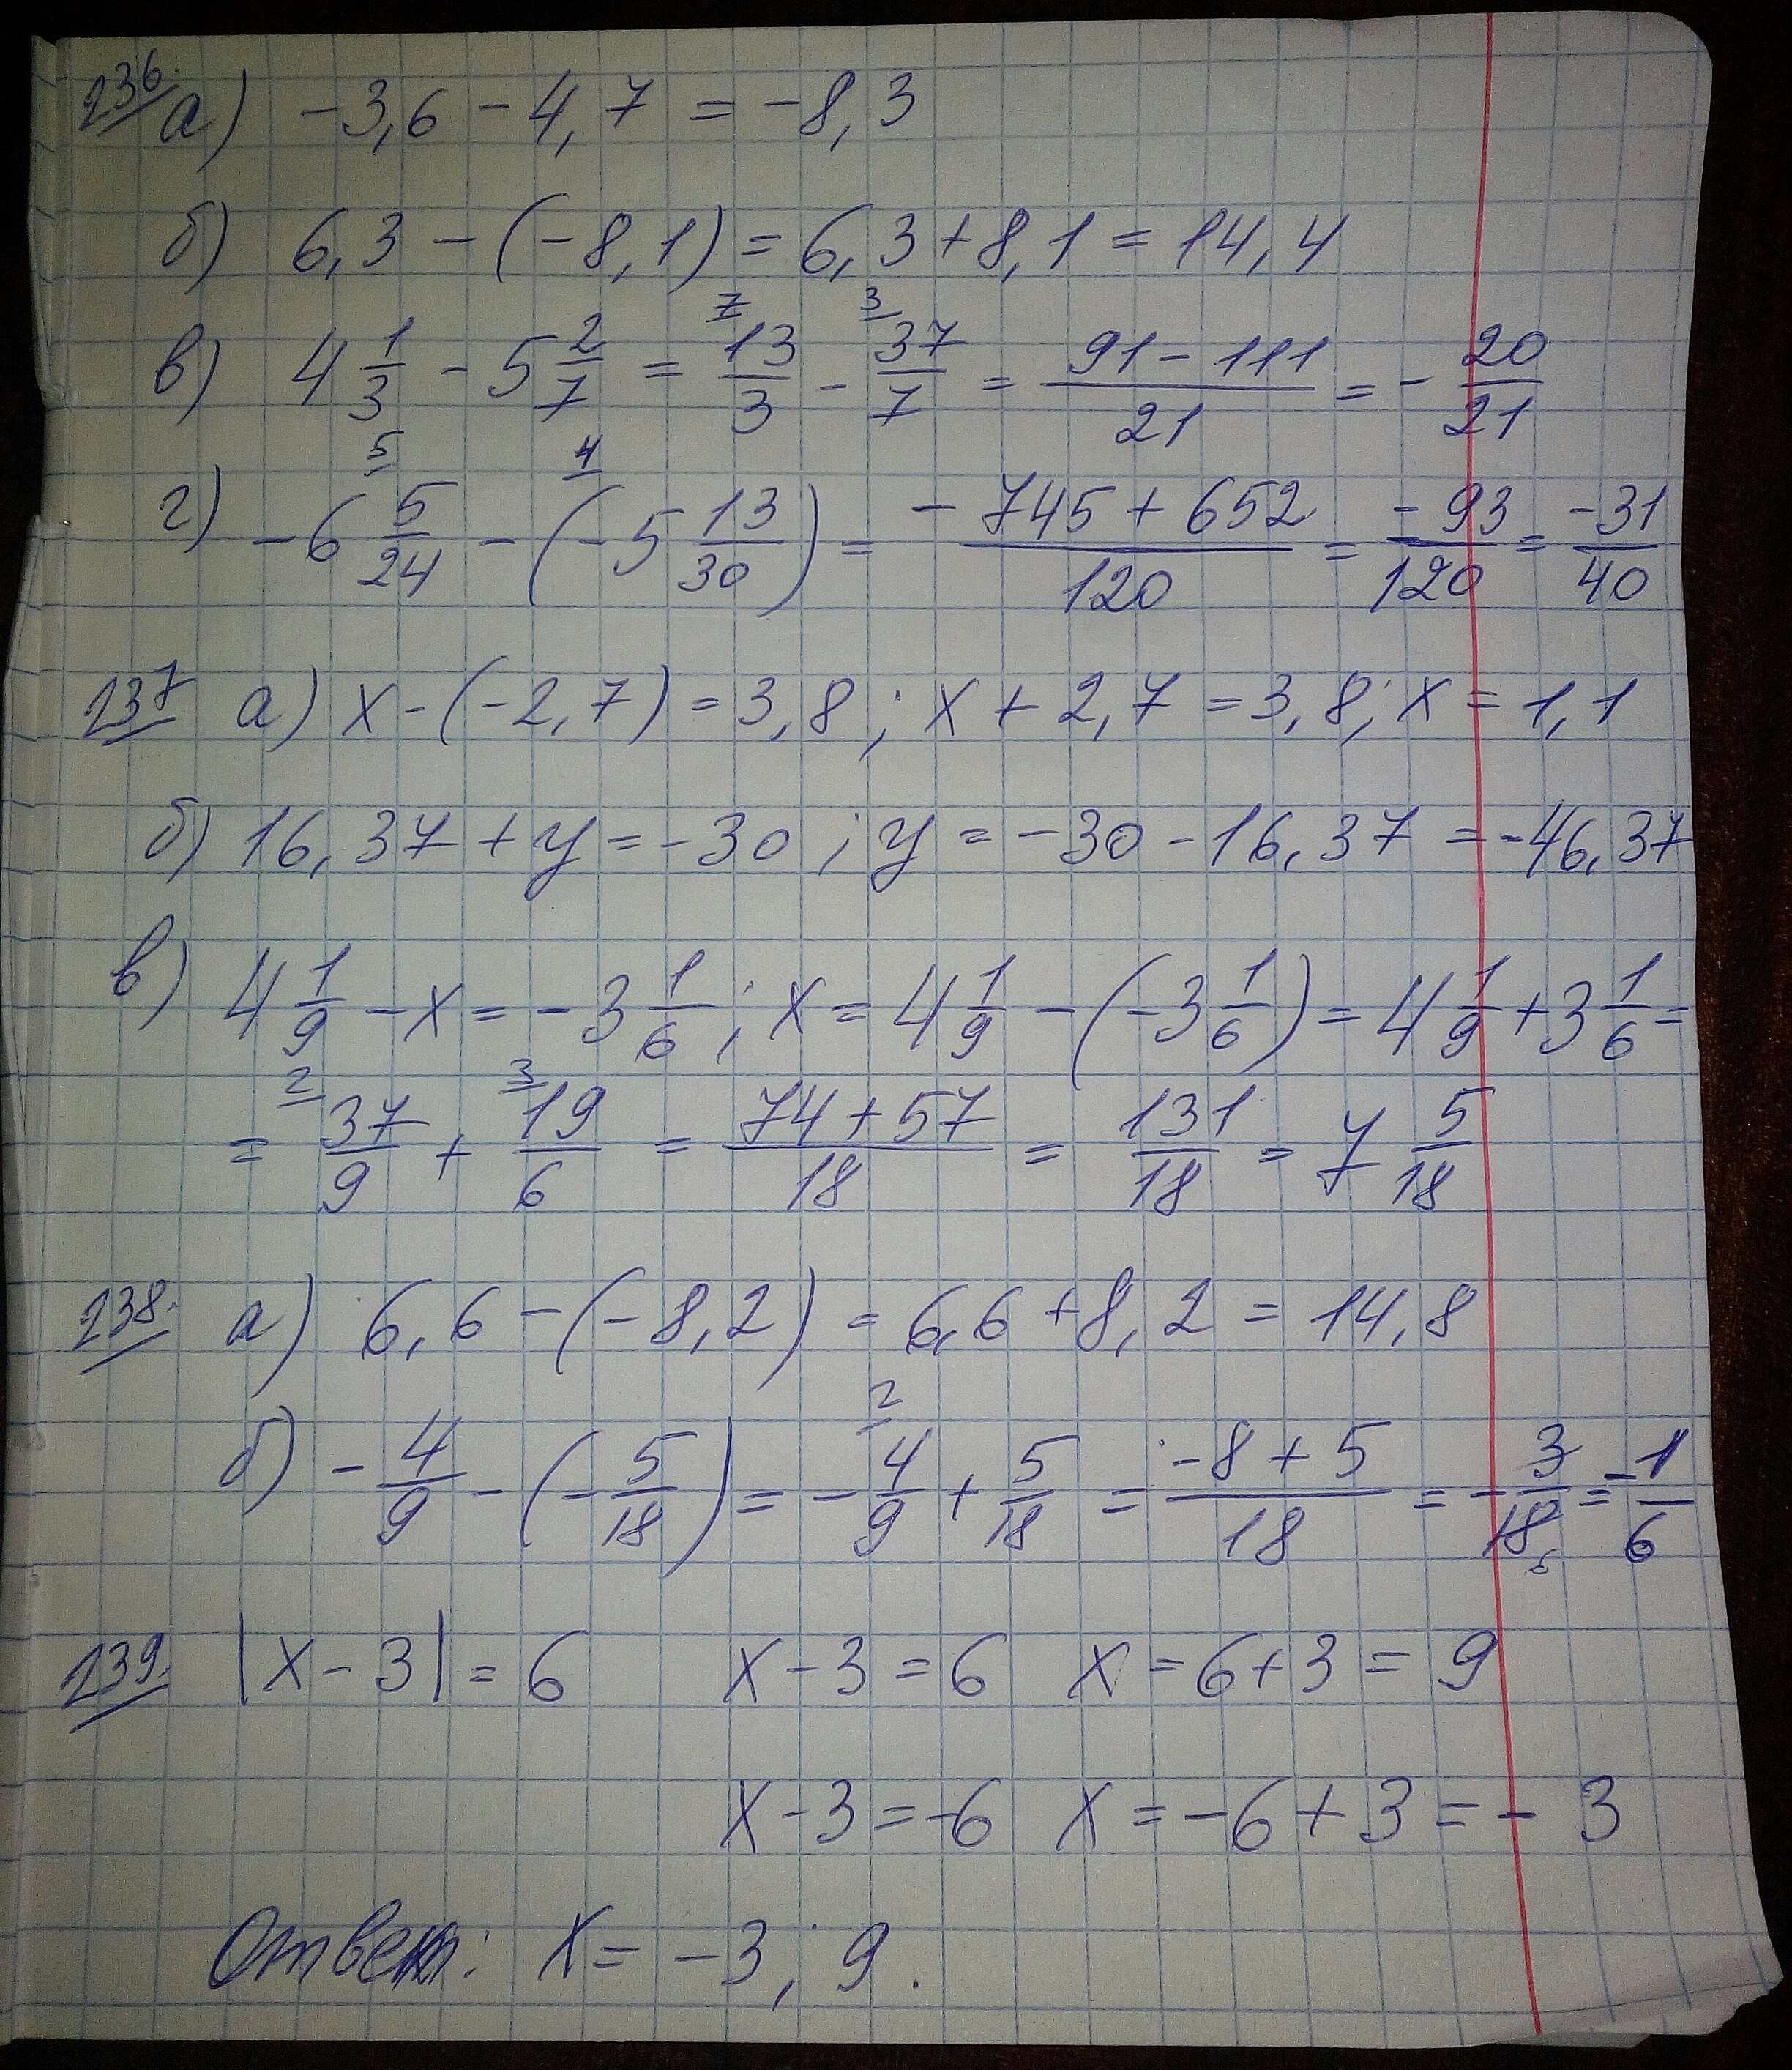 236. а) -3,6 - 4,7 = -8,3
б) 6,3 - (-8,1) = 6,3 + 8,1 = 14,4
в) 4 1/3 - 5 2/7 = 13/3 (7) - 37/7 (3) = (91 - 111)/21 = - 20/21
г) -6 5/24 (5) - (-5 13/30) (4) = (-745 + 652)/120 = -93/120 = -31/40
237 а) x - (-2,7) = 3,8; x + 2,7 = 3,8; x = 1,1
б) 16,37 + y = -30; y = -30 - 16,37 = -46,37
в) 4 1/9 - x = -3 1/6; x = 4 1/9 - (-3 1/6) = 4 1/9 + 3 1/6 =
= 37/9 (2) + 19/6 (3) = (74 + 57)/18 = 131/18 = 7 5/18
238. а) 6,6 - (-8,2) = 6,6 + 8,2 = 14,8
б) - 4/9 - (- 5/18) = - 4/9 (2) + 5/18 = (-8 + 5)/18 = - 3/18 (6) = -1/6
239. |x - 3| = 6 x - 3 = 6 x = 6 + 3 = 9
x - 3 = -6 x = -6 + 3 = - 3
Ответ: x = -3; 9.